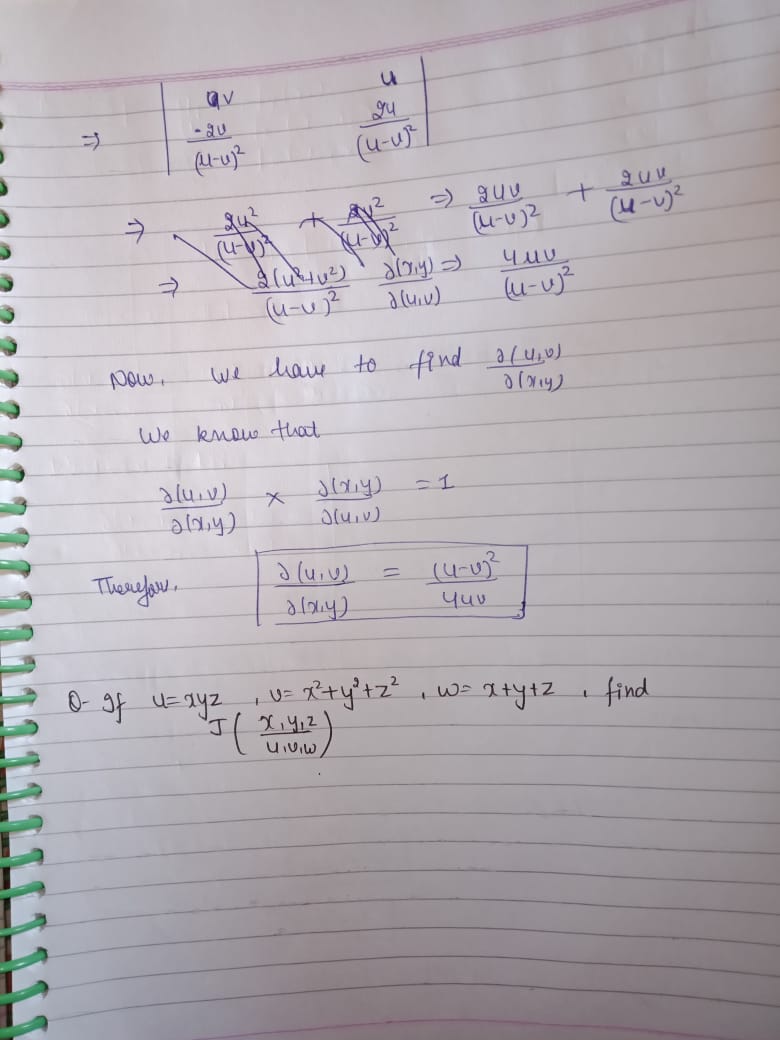 ⇒ | v u |
| -2v/(u-v)² 2u/(u-v)² |
⇒ 2u²/(u-v)² + 2v²/(u-v)² ⇒ 2uv/(u-v)² + 2uv/(u-v)²
⇒ 2(u²+v²)/(u-v)² ∂(x,y)/∂(u,v) ⇒ 4uv/(u-v)²
Now, we have to find ∂(u,v)/∂(x,y)
We know that
∂(u,v)/∂(x,y) × ∂(x,y)/∂(u,v) = 1
Therefore, ∂(u,v)/∂(x,y) = (u-v)²/4uv
Q- If u=xyz, v= x²+y²+z², w= x+y+z, find
J(x,y,z/u,v,w)